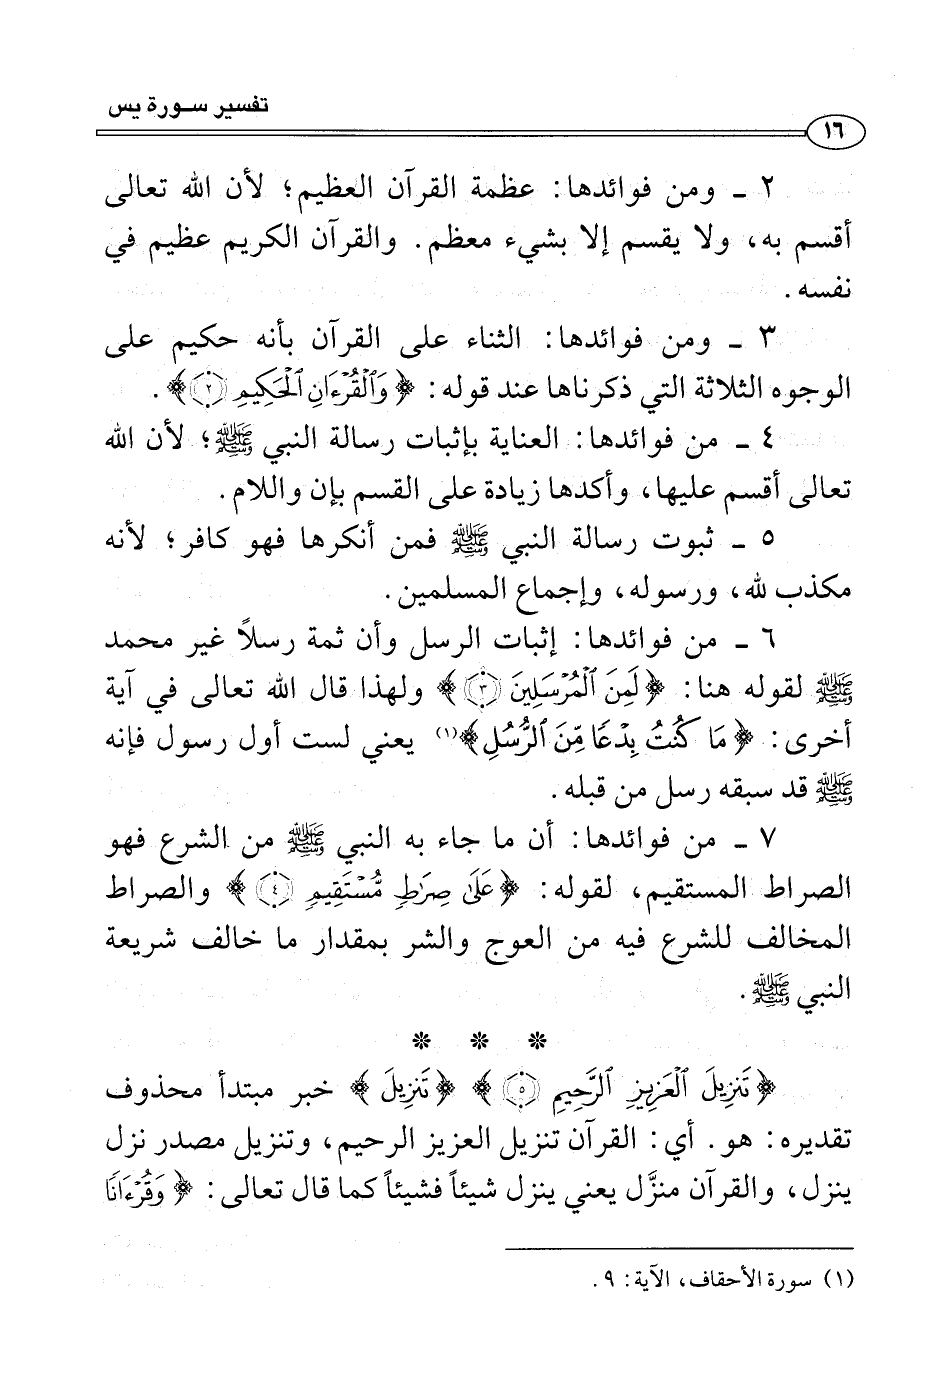 تفسير سورة يس
١٦
٢ ـ ومن فوائدها: عظمة القرآن العظيم؛ لأن الله تعالى
أقسم به، ولا يقسم إلا بشيء معظم. والقرآن الكريم عظيم في
نفسه.
٣ ـ ومن فوائدها: الثناء على القرآن بأنه حكيم على
الوجوه الثلاثة التي ذكرناها عند قوله: ﴿وَٱلْقُرْءَانِ ٱلْحَكِيمِ ﴿٢﴾﴾.
٤ ـ من فوائدها: العناية بإثبات رسالة النبي ﷺ؛ لأن الله
تعالى أقسم عليها، وأكدها زيادة على القسم بإن واللام.
٥ ـ ثبوت رسالة النبي ﷺ فمن أنكرها فهو كافر؛ لأنه
مكذب لله، ورسوله، وإجماع المسلمين.
٦ ـ من فوائدها: إثبات الرسل وأن ثمة رسلاً غير محمد
ﷺ لقوله هنا: ﴿لَمِنَ ٱلْمُرْسَلِينَ ﴿٣﴾﴾ ولهذا قال الله تعالى في آية
أخرى: ﴿مَا كُنتُ بِدْعًا مِّنَ ٱلرُّسُلِ﴾(١) يعني لست أول رسول فإنه
ﷺ قد سبقه رسل من قبله.
٧ ـ من فوائدها: أن ما جاء به النبي ﷺ من الشرع فهو
الصراط المستقيم، لقوله: ﴿عَلَىٰ صِرَٰطٍ مُّسْتَقِيمٍ ﴿٤﴾﴾ والصراط
المخالف للشرع فيه من العوج والشر بمقدار ما خالف شريعة
النبي ﷺ.
* * *
﴿تَنزِيلَ ٱلْعَزِيزِ ٱلرَّحِيمِ ﴿٥﴾﴾ ﴿تَنزِيلَ﴾ خبر مبتدأ محذوف
تقديره: هو. أي: القرآن تنزيل العزيز الرحيم، وتنزيل مصدر نزل
ينزل، والقرآن منزَّل يعني ينزل شيئاً فشيئاً كما قال تعالى: ﴿وَقُرْءَانًا
(١) سورة الأحقاف، الآية: ٩.